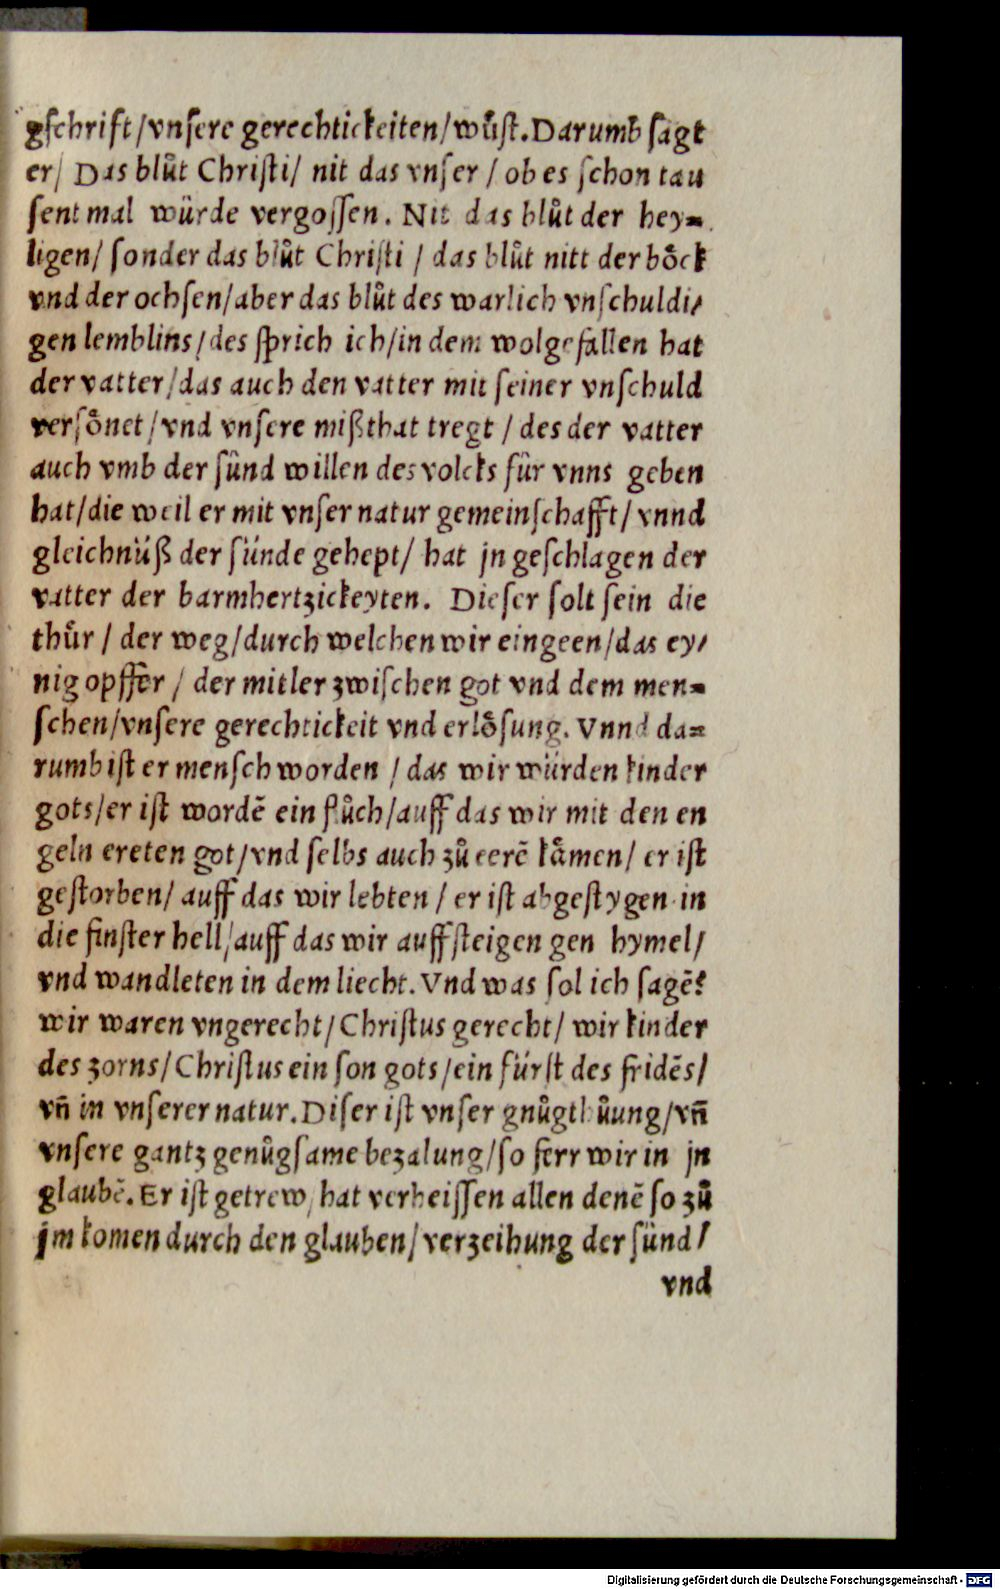 gſchrift/vnſere gerechtickeiten/wůſt. Darumb ſagt
er/ Das blůt Chriſti/ nit das vnſer / ob es ſchon tau
ſent mal würde vergoſſen. Nit das blůt der hey-
ligen/ ſonder das blůt Chriſti / das blůt nitt der boͤck
vnd der ochſen/aber das blůt des warlich vnſchuldi/
gen lemblins/des ſprich ich/in dem wolgefallen hat
der vatter/das auch den vatter mit ſeiner vnſchuld
verſoͤnet/vnd vnſere mißthat tregt / des der vatter
auch vmb der ſünd willen des volcks für vnns geben
hat/die weil er mit vnſer natur gemeinſchafft/ vnnd
gleichnüß der ſünde gehept/ hat jn geſchlagen der
vatter der barmhertzickeyten. Dieſer ſolt ſein die
thür / der weg/durch welchen wir eingeen/das ey/
nig opffer / der mitler zwiſchen got vnd dem men-
ſchen/vnſere gerechtickeit vnd erloͤſung. Vnnd da-
rumb iſt er menſch worden / das wir würden kinder
gots/er iſt wordē ein flůch/auff das wir mit den en
geln ereten got/vnd ſelbs auch zů eerē kaͤmen/ er iſt
geſtorben/ auff das wir lebten / er iſt abgeſtygen in
die finſter hell/auff das wir auffſteigen gen hymel/
vnd wandleten in dem liecht. Vnd was ſol ich ſagē?
wir waren vngerecht/Chriſtus gerecht/ wir kinder
des zorns/Chriſtus ein ſon gots/ein fürſt des fridēs/
vn̄ in vnſerer natur. Diſer iſt vnſer gnůgthůung/vn̄
vnſere gantz genůgſame bezalung/ſo ferr wir in jn
glaubē. Er iſt getrew/hat verheiſſen allen denē ſo zů
jm komen durch den glauben/verzeihung der ſünd/
vnd
Digitalisierung gefördert durch die Deutsche Forschungsgemeinschaft - DFG